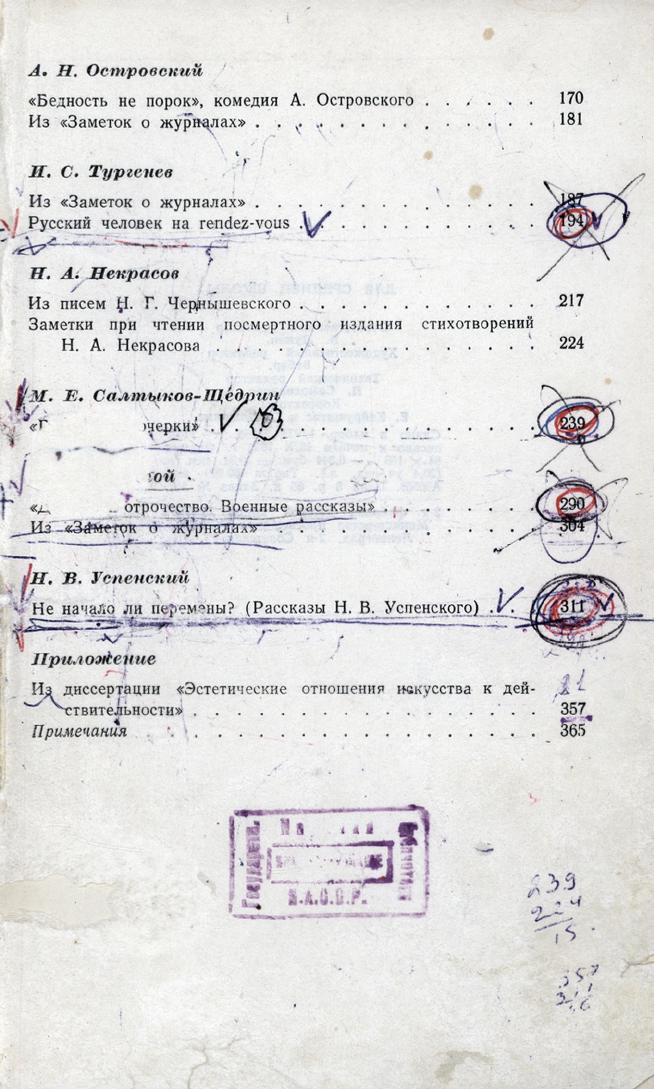 А. Н. Островский
«Бедность не порок», комедия А. Островского . . . . . . 170
Из «Заметок о журналах» . . . . . . . . . . . . . . 181
И. С. Тургенев
Из «Заметок о журналах» . . . . . . . . . . . . . . 187
Русский человек на rendez-vous . . . . . . . . . . . 194
Н. А. Некрасов
Из писем Н. Г. Чернышевского . . . . . . . . . . . . 217
Заметки при чтении посмертного издания стихотворений
Н. А. Некрасова . . . . . . . . . . . . . . . . 224
М. Е. Салтыков-Щедрин
черки» . . . . . . . . . . . . . . . 239
той
отрочество. Военные рассказы» . . . . . . . . 290
Из «Заметок о журналах» . . . . . . . . . . . . . . 304
Н. В. Успенский
Не начало ли перемены? (Рассказы Н. В. Успенского) . . . 311
Приложение
Из диссертации «Эстетические отношения искусства к дей-
ствительности» . . . . . . . . . . . . . . . . . 357
Примечания . . . . . . . . . . . . . . . . . . . . 365
239
224
15
357